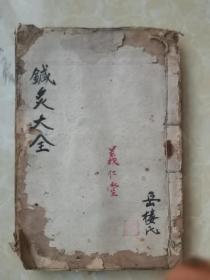 鍼灸大全
義仁堂
岳樓氏